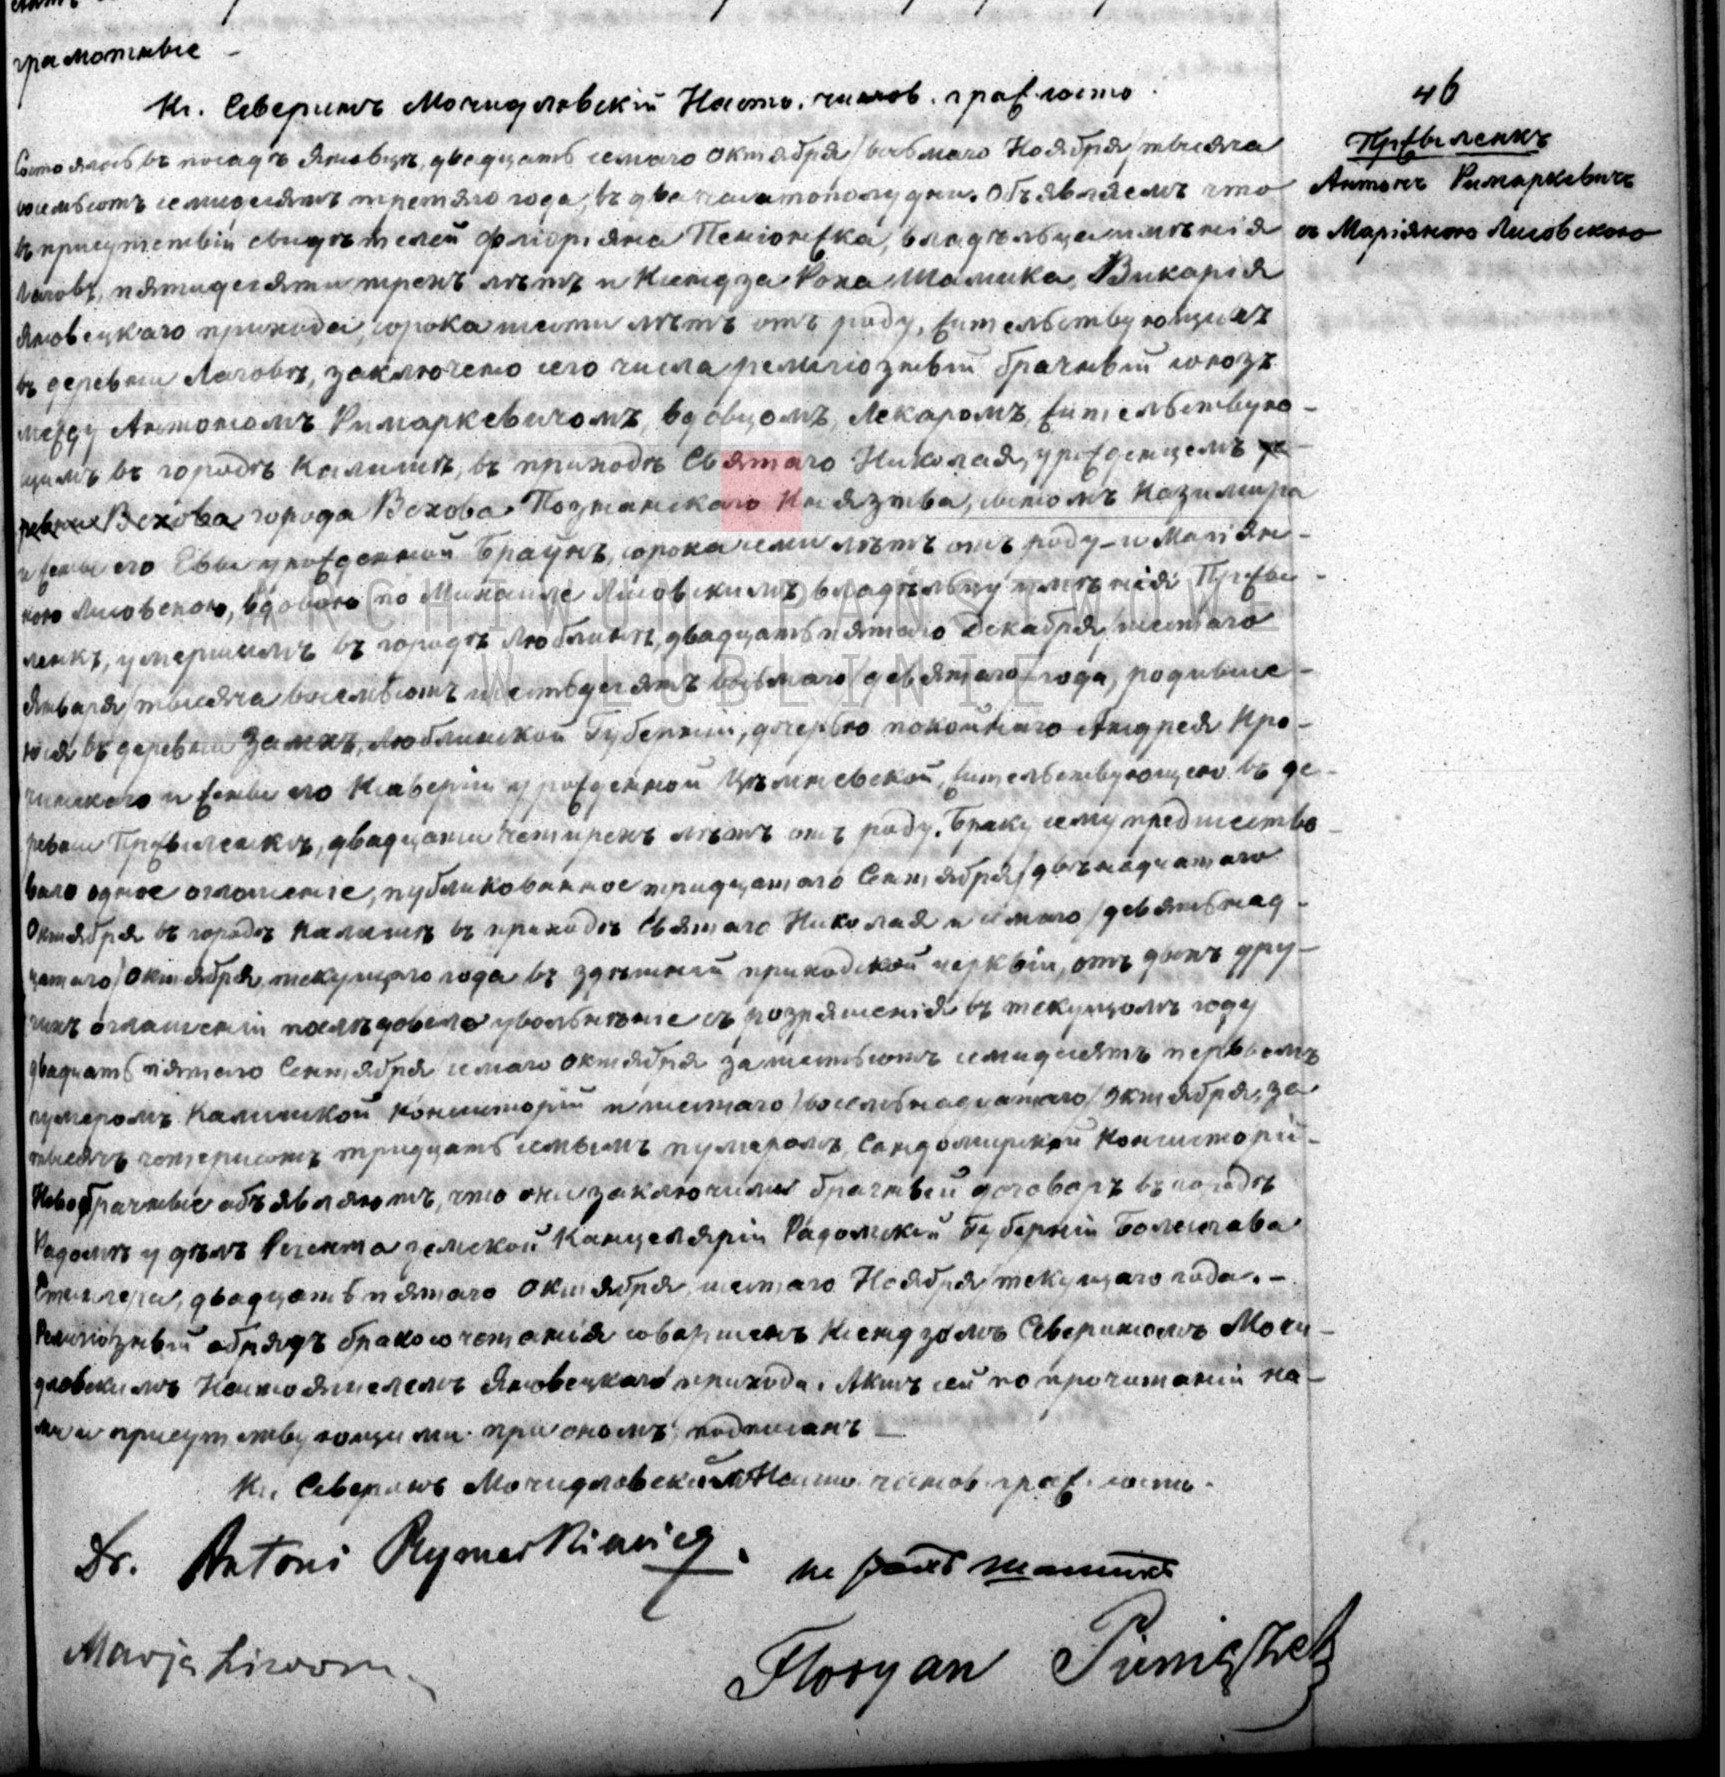 грамотные —
Кс. Северинъ Мочидловскій Наст. чинов. граж. сост.
46
Пржыленкъ
Антонъ Римаркевичъ
съ Маріянною Лисовскою
Состоялось въ посадѣ Яновцѣ, двадцать седьмаго Октября / восьмаго Ноября / тысяча
восемьсотъ семидесятъ третяго года, въ два часа пополудни. Объявляемъ что
въ присутствіи свидѣтелей Флоріяна Пеніонжка, владѣльца имѣнія
Лаговъ, пятидесяти трехъ лѣтъ и Ксендза Роха Шамика, Викарія
Яновецкаго прихода, сорока шести лѣтъ отъ роду, жительствующихъ
въ деревни Лаговѣ, заключено сего числа религіозный брачный союзъ
между Антоніомъ Римаркевичомъ, вдовцомъ, Лекаромъ, жительствую-
щимъ въ городѣ Калишѣ, въ приходѣ Святаго Николая, урожденцемъ де-
ревни Вехова города Вехова Познанскаго Князтва, сыномъ Казимира
и жены его Евы урожденной Браунъ, сорока семи лѣтъ отъ роду — и Маріян-
ною Лисовскою, вдовою по Михаиле Лисовскимъ владѣльцу имѣнія Пржы-
ленкъ, умершимъ въ городѣ Люблинѣ, двадцать пятаго Декабря / шестаго
Января / тысяча восемьсотъ шестьдесятъ восьмаго / девятаго года, родивше-
юся въ деревни Замкъ, Люблинской Губерніи, дочерью покойнаго Андрея Кро-
чинскаго и жены его Ксаверіи урожденной Цѣмневской, жительствующею въ де-
ревни Пржыленкѣ, двадцати четырехъ лѣтъ отъ роду. Браку сему предшество-
вало одное оглошеніе, публикованное тридцатаго Сентября / двѣнадцатаго
Октября въ городѣ Калишѣ въ приходѣ Святаго Николая и седмаго / девятьнад-
цатаго / Октября, текущаго года въ здѣшней приходской церквіи, отъ двохъ дру-
гихъ оглашеній послѣдовало увольнѣніе съ розряшенія въ текущомъ году
двадцать пятаго Сентября седмаго Октября за шестьсотъ семидесятъ первымъ
нумеромъ Калишской Консисторіи и шестаго / восемьнадцатаго / Октября, за
тысячъ четериста тридцать семымъ нумеромъ, Сандомирской Консисторіи —
Новобрачные объявляютъ, что они заключили брачный договоръ въ городѣ
Радомѣ у дѣлъ Регента земской Канцеляріи Радомской Губерніи Болеслава
двадцать пятаго Октября, шестаго Ноября текущаго года. —
Религіозный обрядъ бракосочетанія совершенъ Ксендзомъ Севериномъ Мочи-
дловскимъ Настоятелемъ Яновецкаго прихода. Актъ сей по прочитаніи на-
ми и присутствующими при ономъ подписанъ —
Кс. Северинъ Мочидловскій Наст. чинов. граж. сост.
Dr. Antoni Rymarkiewicz.
Кс Рохъ Шамикъ
Marja Lisows
Floryan Pieniążek